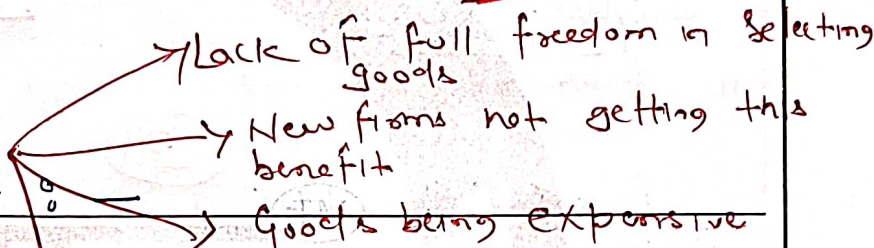 Lack of full freedom in Selecting
goods
New firms not getting this
benefit
Goods being expensive